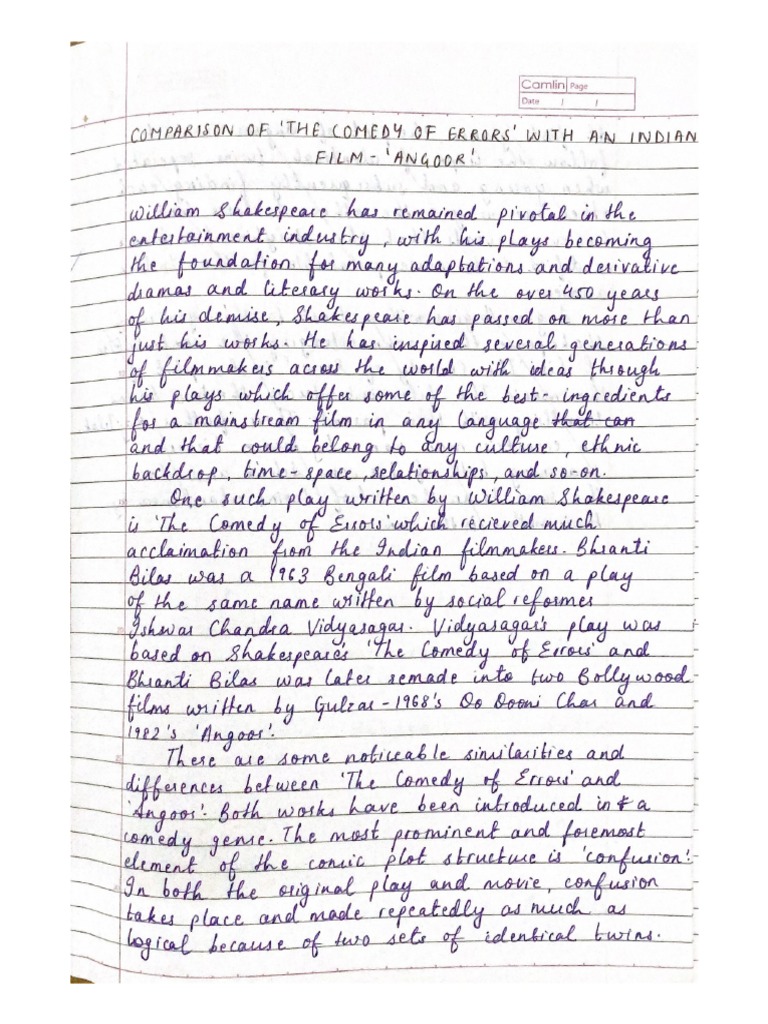 Camlin Page
Date / /
COMPARISON OF 'THE COMEDY OF ERRORS' WITH AN INDIAN
FILM - 'ANGOOR'
William Shakespeare has remained pivotal in the
entertainment industry, with his plays becoming
the foundation for many adaptations and derivative
dramas and literary works. On the over 450 years
of his demise, Shakespeare has passed on more than
just his works. He has inspired several generations
of filmmakers across the world with ideas through
his plays which offer some of the best-ingredients
for a mainstream film in any language that can
and that could belong to any culture, ethnic
backdrop, time-space, relationships, and so-on.
One such play written by William Shakespeare
is 'The Comedy of Errors' which recieved much
acclaimation from the Indian filmmakers. Bhranti
Bilas was a 1963 Bengali film based on a play
of the same name written by social reformer
Ishwar Chandra Vidyasagar. Vidyasagar's play was
based on Shakespeare's 'The Comedy of Errors' and
Bhranti Bilas was later remade into two Bollywood
films written by Gulzar - 1968's Do Dooni Char and
1982's 'Angoor'.
There are some noticeable similarities and
differences between 'The Comedy of Errors' and
'Angoor'. Both works have been introduced in a
comedy genre. The most prominent and foremost
element of the comic plot structure is 'confusion'.
In both the original play and movie, confusion
takes place and made repeatedly as much as
logical because of two sets of identical twins.